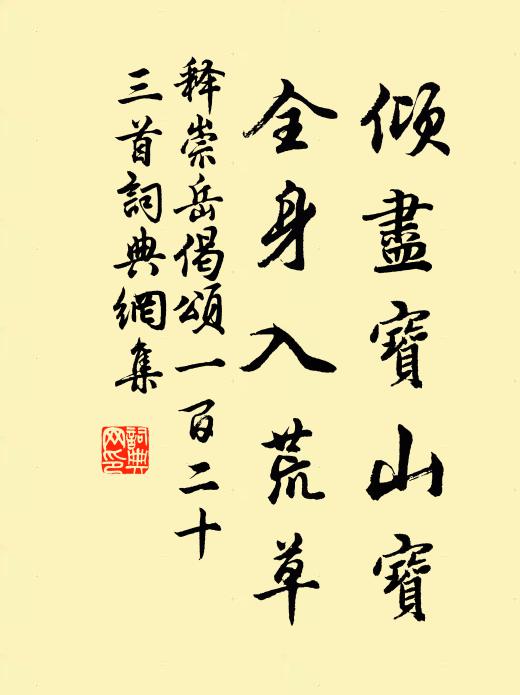 傾盡寶山寶
全身入荒草
释崇岳偈頌一百二十
三首詞典網集
詞典網印